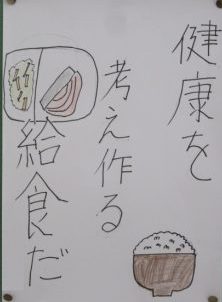 健康を
考え作る
給食だ